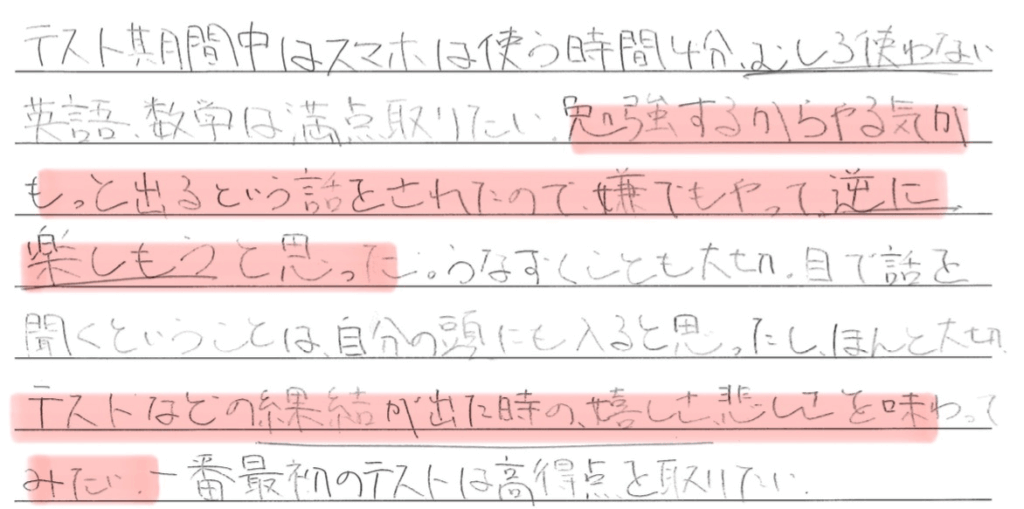 テスト期間中はスマホは使う時間4分、むしろ使わない
英語、数学は満点取りたい。勉強するからやる気が
もっと出るという話をされたので、嫌でもやって、逆に
楽しもうと思った。うなずくことも大切。目で話を
聞くということは、自分の頭にも入ると思ったし、ほんと大切。
テストなどの結果結が出た時の、嬉しさ、悲しさを味わって
みたい。一番最初のテストは高得点を取りたい。